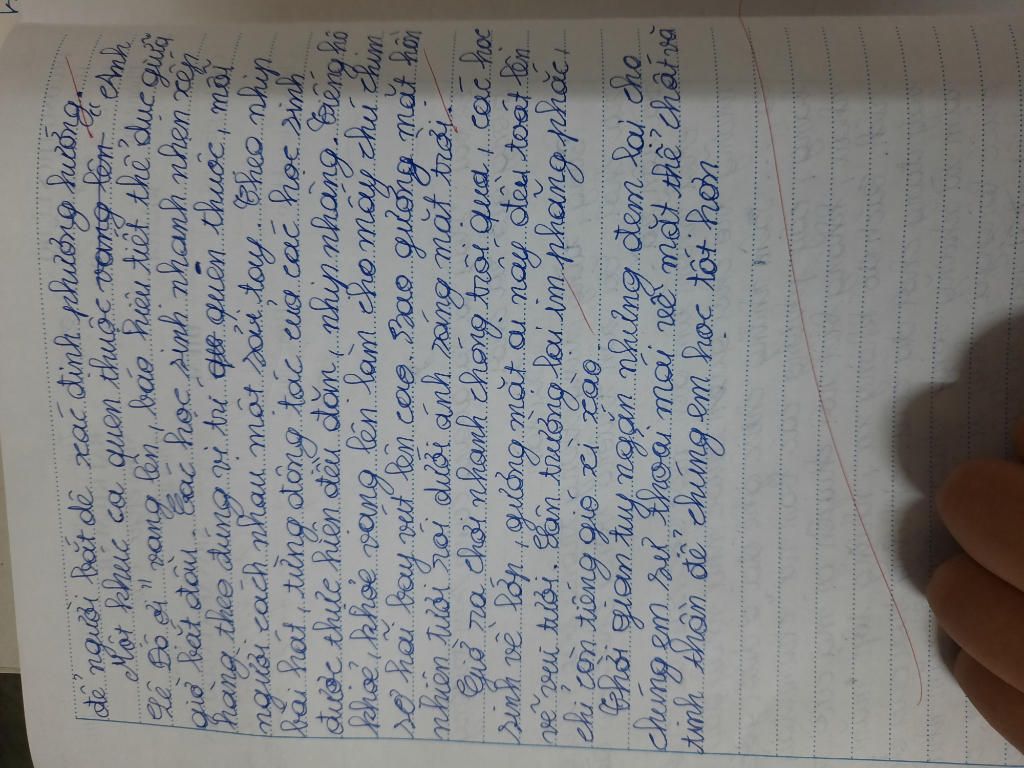 để người bắt dê xác định phương hướng.
Một khúc ca quen thuộc vang lên "Anh
Lê Đô ơi" vang lên, báo hiệu tiết thể dục giữa
giờ bắt đầu. Các học sinh nhanh nhẹn xếp
hàng theo đúng vị trí quen thuộc, mỗi
người cách nhau một sải tay. Theo nhịp
bài hát, từng động tác của các học sinh
được thực hiện đều đặn, nhịp nhàng. Tiếng hô
khoẻ, khoẻ vang lên làm cho mấy chú chim
sợ hãi bay vút lên cao. Bao gương mặt hồn
nhiên tươi rói dưới ánh sáng mặt trời.
Giờ ra chơi nhanh chóng trôi qua, các học
sinh về lớp, gương mặt ai nấy đều toát lên
vẻ vui tươi. Sân trường lại im phăng phắc,
chỉ còn tiếng gió xì xào
Thời gian tuy ngắn nhưng đem lại cho
chúng em sự thoải mái về mặt thể chất và
tinh thần để chúng em học tốt hơn.